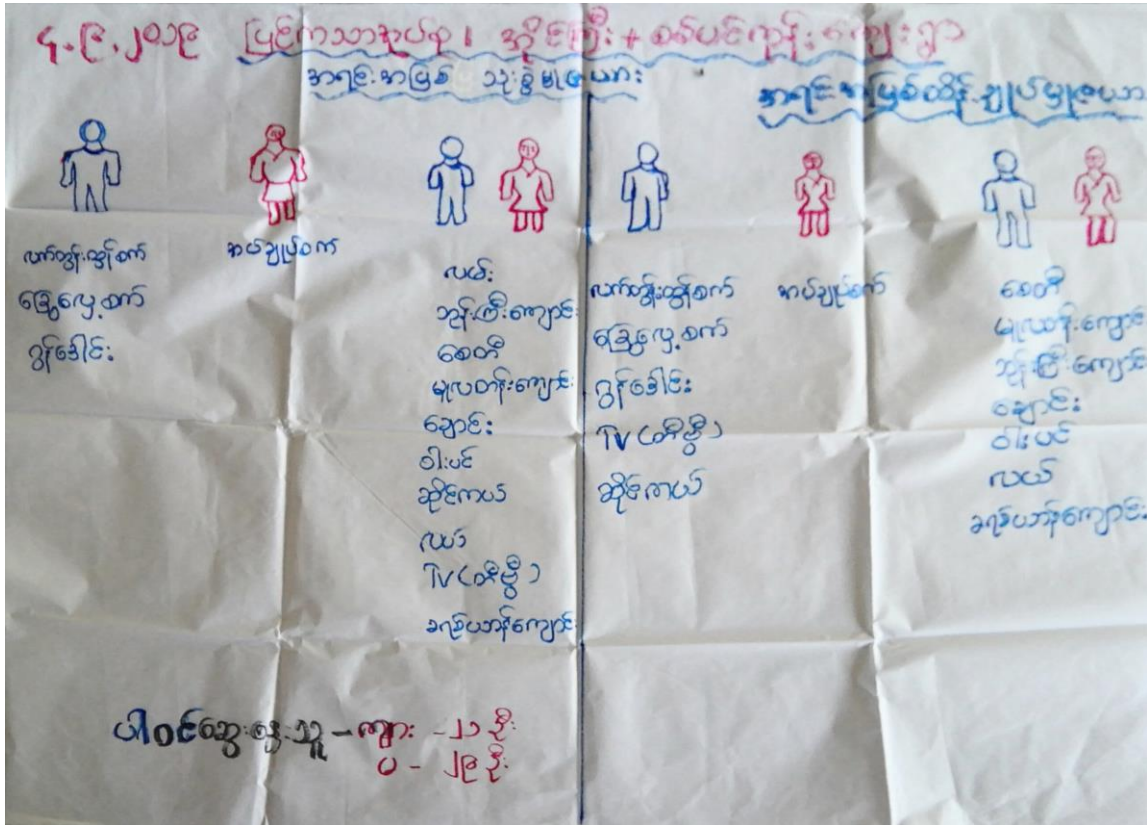 ၄.၉.၂၀၁၉ ပြင်ကသာအုပ်စု၊ အိုင်ကြီး + စစ်ပင်ကုန်းကျေးရွာ
အရင်းအမြစ် သုံးစွဲမှုဇယား
အရင်းအမြစ်ထိန်းချုပ်မှုဇယား
လက်တွန်းထွန်စက်
ခြွေလှေ့စက်
ဂွန်ဒေါင်း
အပ်ချုပ်စက်
လမ်း
ဘုန်းကြီးကျောင်း
စေတီ
မူလတန်းကျောင်း
ချောင်း
ဝါးပင်
ဆိုင်ကယ်
လယ်
TV (တီဗွီ)
ခရစ်ယာန်ကျောင်း
လက်တွန်းထွန်စက်
ခြွေလှေ့စက်
ဂွန်ဒေါင်း
TV (တီဗွီ)
ဆိုင်ကယ်
အပ်ချုပ်စက်
စေတီ
မူလတန်းကျောင်း
ဘုန်းကြီးကျောင်း
ချောင်း
ဝါးပင်
လယ်
ခရစ်ယာန်ကျောင်း
ပါဝင်ဆွေးနွေးသူ – ကျား – ၂၁ ဦး
မ – ၂၉ ဦး